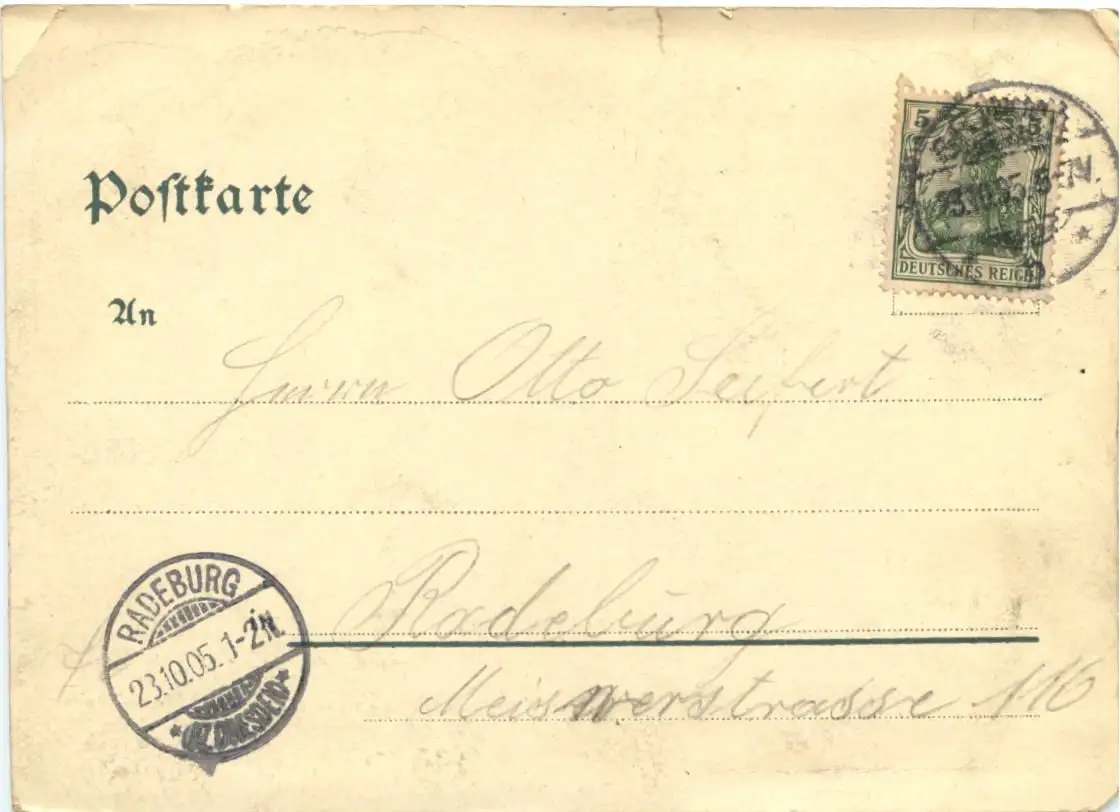 Postkarte
5 5
23.10.05. 8-9N.
DEUTSCHES REICH
An
Herrn Otto Seifert
Radeburg
Meisnerstrasse 116
RADEBURG
23.10.05. 1-2N.
*(BZ. DRESDEN)*